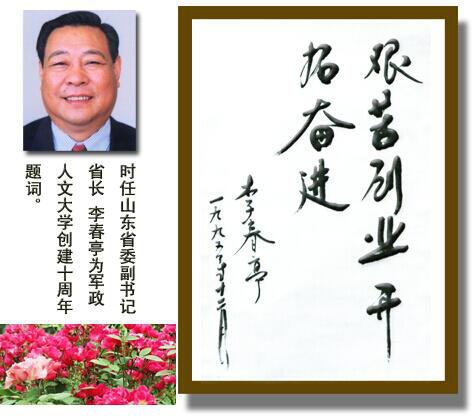 时任山东省委副书记
省长 李春亭为军政
人文大学创建十周年
题词。
艰苦创业 开
拓奋进
李春亭
一九九五年十二月